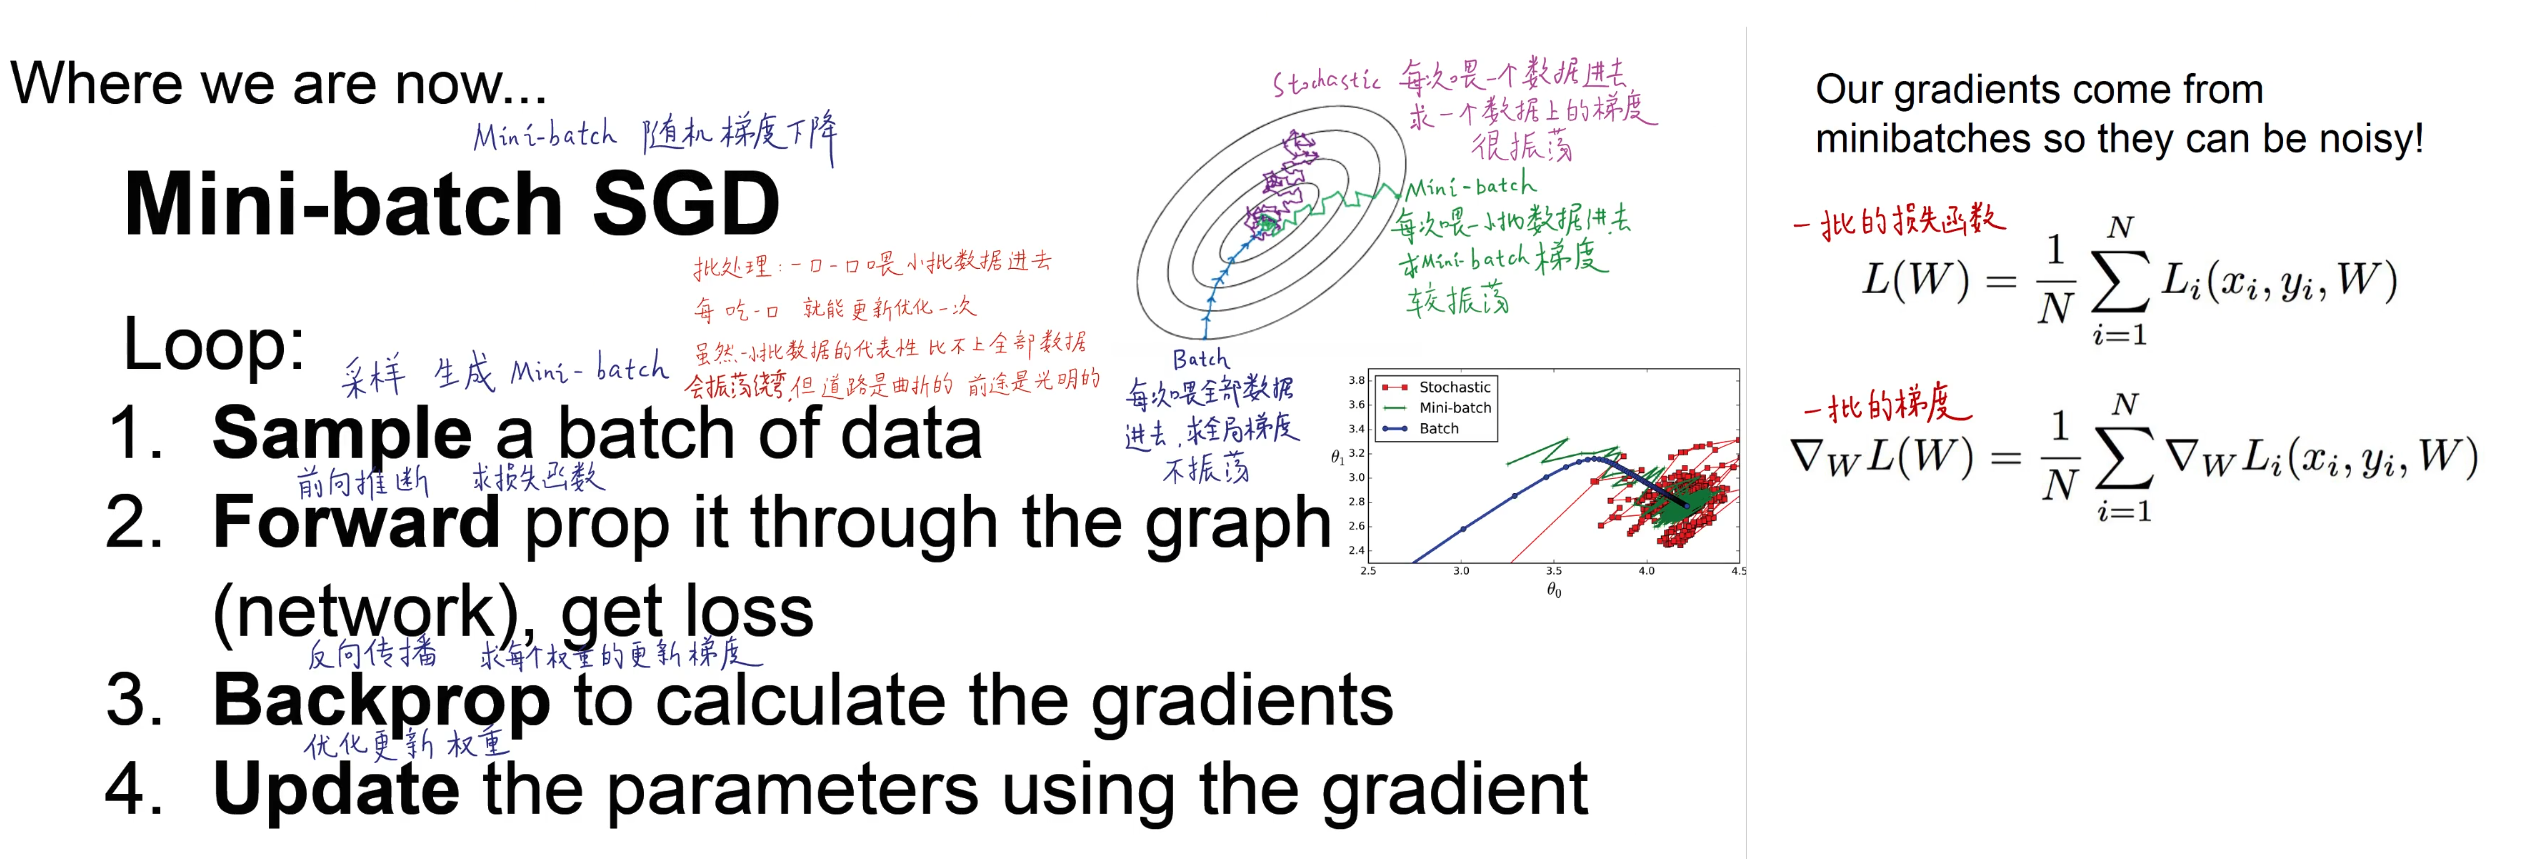 Where we are now...
Mini-batch 随机梯度下降
Mini-batch SGD
批处理:一口一口喂小批数据进去
每吃一口 就能更新优化一次
虽然一小批数据的代表性比不上全部数据
会振荡绕弯,但道路是曲折的 前途是光明的
Loop:
采样 生成 Mini-batch
1. Sample a batch of data
前向推断 求损失函数
2. Forward prop it through the graph
(network), get loss
反向传播 求每个权重的更新梯度
3. Backprop to calculate the gradients
优化更新权重
4. Update the parameters using the gradient
Stochastic 每次喂一个数据进去
求一个数据上的梯度
很振荡
Mini-batch
每次喂一小批数据进去
求Mini-batch梯度
较振荡
Batch
每次喂全部数据
进去,求全局梯度
不振荡
Stochastic
Mini-batch
Batch
3.8
3.6
3.4
3.2
3.0
2.8
2.6
2.4
θ₁
2.5 3.0 3.5 4.0 4.5
θ₀
Our gradients come from
minibatches so they can be noisy!
一批的损失函数
L(W) = 1/N ∑_{i=1}^{N} L_i(x_i, y_i, W)
一批的梯度
∇_W L(W) = 1/N ∑_{i=1}^{N} ∇_W L_i(x_i, y_i, W)